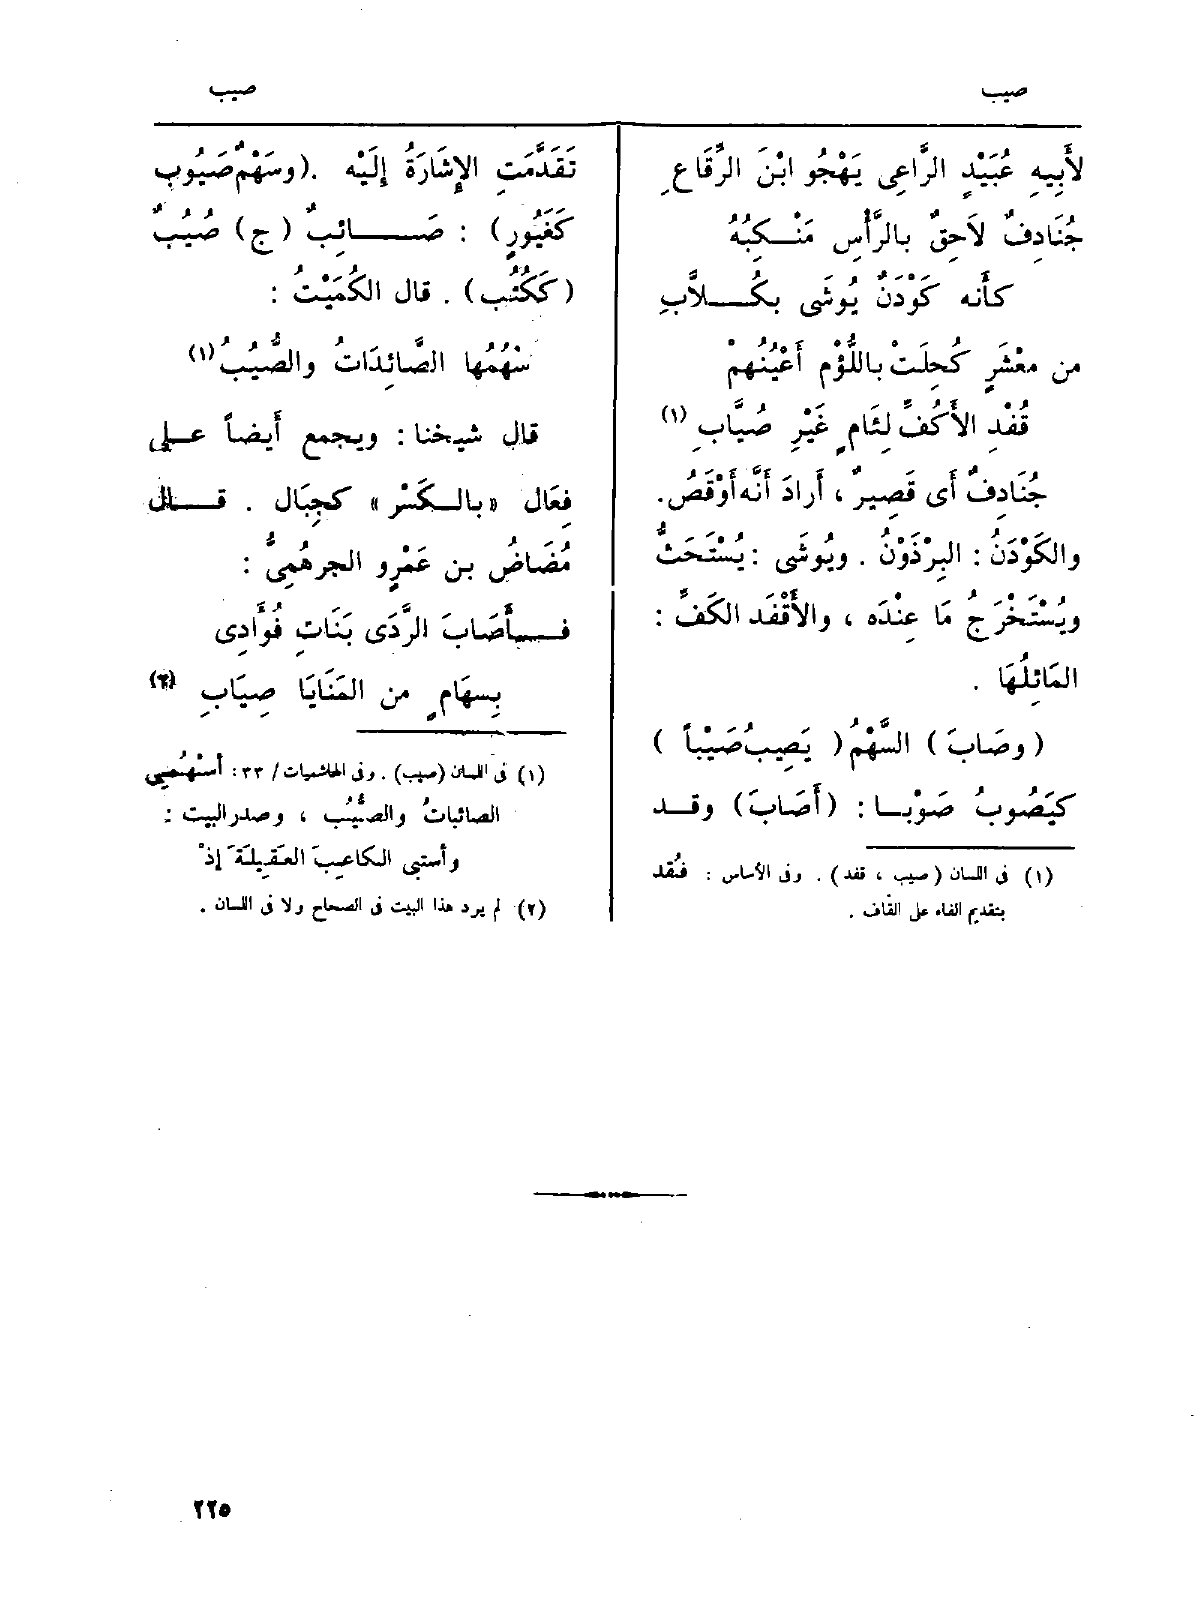 صيب
صيب
لأَبِيهِ عُبَيْدٍ الرَّاعِى يَهْجُو ابْنَ الرِّقَاعِ
جُنَادِفٌ لاَحِقٌ بالرَّأْسِ مَنْـكِبُهُ
كأَنه كَوْدَنٌ يُوشَى بكُـــلاَّبِ
من معْشَرٍ كُحِلَتْ باللُّؤْمِ أَعْيُنُهمْ
قُفْدِ الأَكُفِّ لِئَامٍ غَيْرِ صُيَّابِ (١)
جُنَادِفٌ أَى قَصِيرٌ ، أَرادَ أَنَّه أَوْقَصُ.
والكَوْدَنُ : البِرْذَوْنُ . ويُوشَى : يُسْتَحَثُّ
ويُسْتَخْرَجُ مَا عِنْدَه ، والأَقْفَد الكَفِّ :
المَائلُهَا .
( وصَابَ ) السَّهْمُ ( يَصِيبُ صَيْباً )
كيَصُوبُ صَوْبـا : (أَصَابَ) وقـد
(١) فى اللسان (صيب ، قفد) . وفى الأساس : فُقد
بتقديم الفاء على القاف .
تَقَدَّمَتِ الإِشَارَةُ إِلَيْه .(وسَهْمٌ صَيُوب
كَغَيُورٍ) : صَـــائِبٌ (ج) صُيُبٌ
(ككُتُب) . قال الكُمَيْتُ :
سْهُمُها الصَّائِدَاتُ والصُّيُبُ (١)
قال شيخنا : ويجمع أَيضاً عـلى
فِعَال «بالـكَسْر» كجِبَال . قــال
مُضَاضُ بن عَمْرٍو الجرهُمِىُّ :
فـــأَصَابَ الرَّدَى بَنَاتِ فُؤَادِى
بِسِهَامٍ من المَنَايَا صِيَابِ (٢)
(١) فى اللسان (صيب) . وفى الهاشميات / ٣٣ : أسْهُمى
الصائباتُ والصُّيُب ، وصدر البيت :
وأستبى الكاعِبَ العَقِيلَةَ إذْ
(٢) لم يرد هذا البيت فى الصحاح ولا فى اللسان .
٢٢٥